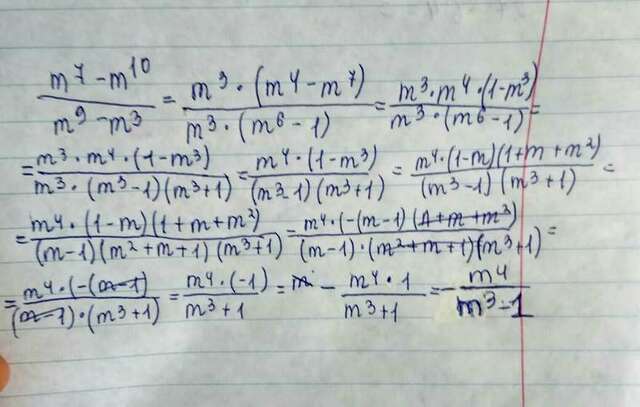 (m⁷ - m¹⁰)/(m⁹ - m³) = (m³ · (m⁴ - m⁷))/(m³ · (m⁶ - 1)) = (m³ · m⁴ · (1 - m³))/(m³ · (m⁶ - 1)) =
= (m³ · m⁴ · (1 - m³))/(m³ · (m³ - 1)(m³ + 1)) = (m⁴ · (1 - m³))/((m³ - 1)(m³ + 1)) = (m⁴ · (1 - m)(1 + m + m²))/((m³ - 1)(m³ + 1)) =
= (m⁴ · (1 - m)(1 + m + m²))/((m - 1)(m² + m + 1)(m³ + 1)) = (m⁴ · (-(m - 1)(1 + m + m²))/((m - 1) · (m² + m + 1)(m³ + 1)) =
= (m⁴ · (-(m - 1))/((m - 1) · (m³ + 1)) = (m⁴ · (-1))/(m³ + 1) = - (m⁴ · 1)/(m³ + 1) = - m⁴/(m³ - 1)